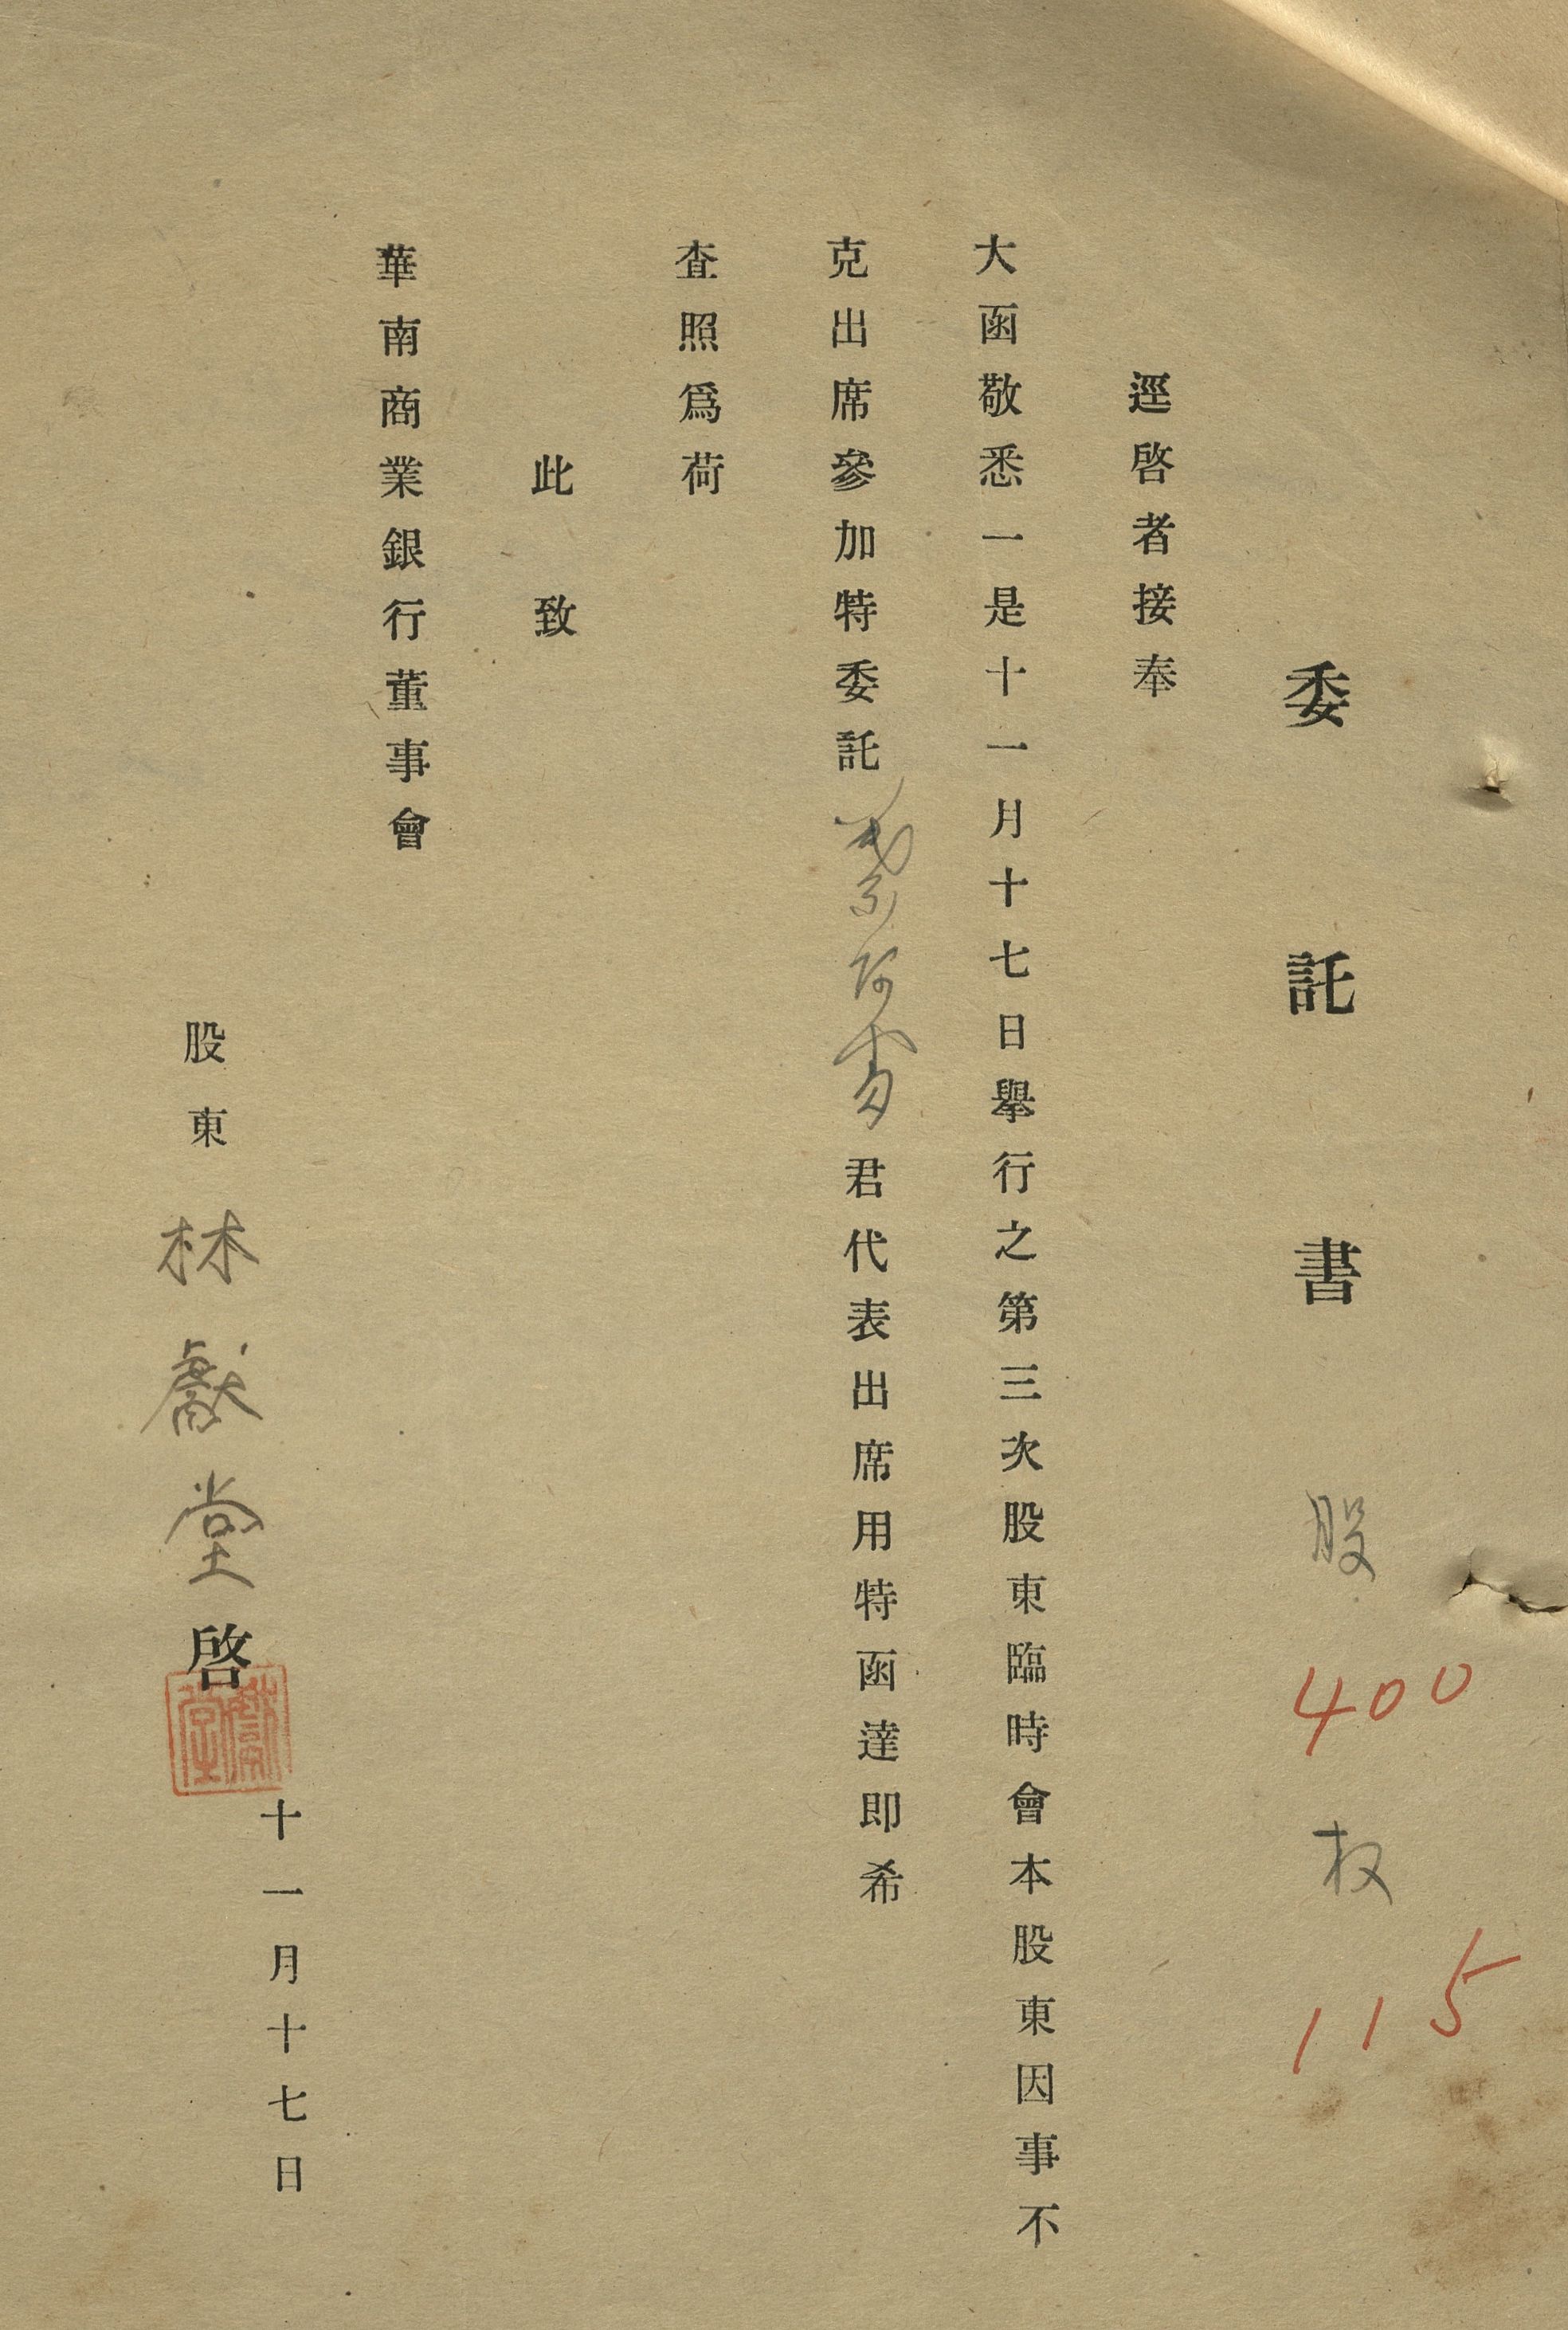 委託書 股 400 权 115
逕啓者接奉
大函敬悉一是十一月十七日舉行之第三次股東臨時會本股東因事不
克出席參加特委託 君代表出席用特函達即希
査照爲荷
此致
華南商業銀行董事會
十一月十七日
股東 林獻堂 啓
獻堂